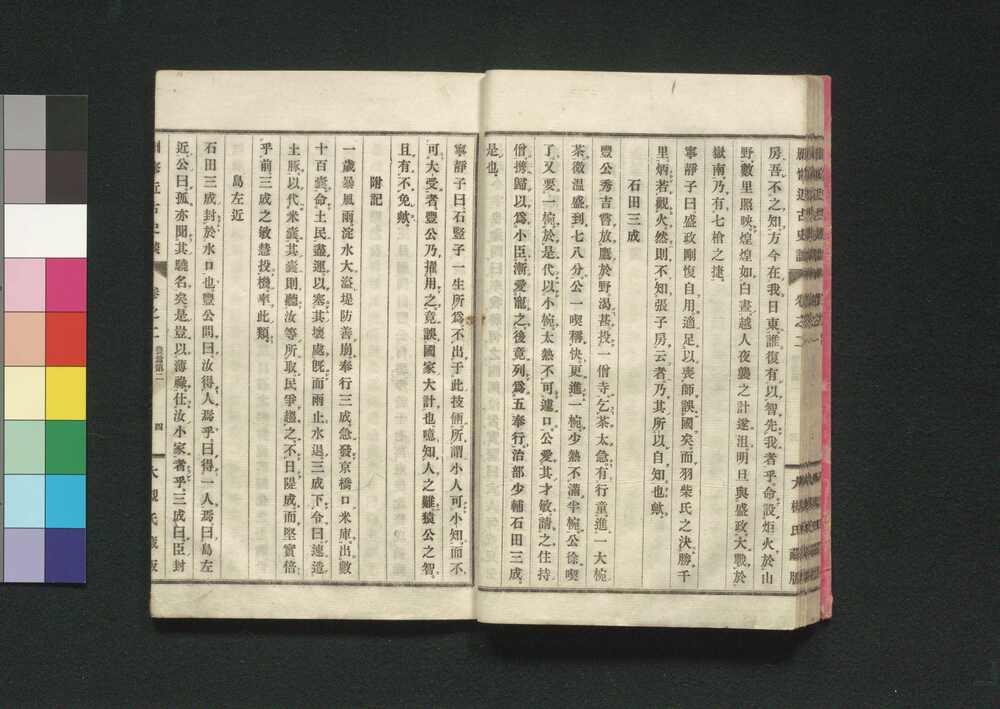 房吾不之知方今在我日東誰復有以智先我者乎命設炬火於山
野數里照映煌煌如白晝越人夜襲之計遂沮明旦與盛政大戰於
嶽南乃有七槍之捷
寧靜子曰盛政剛愎自用適足以喪師誤國矣而羽柴氏之決勝千
里炳若觀火然則不知張子房云者乃其所以自知也歟
石田三成
豐公秀吉嘗放鷹於野渴甚投一僧寺乞茶太急有行童進一大椀
茶微温盛到七八分公一喫稱快更進一椀少熱不滿半椀公徐喫
了又要一椀於是代以小椀太熱不可遽口公愛其才敏請之住持
僧携歸以爲小臣漸愛寵之後竟列爲五奉行治部少輔石田三成
是也
寧靜子曰石豎子一生所爲不出于此技倆所謂小人可小知而不
可大受者豐公乃擢用之竟誤國家大計也噫知人之難猿公之智
且有不免歟
附記
一歲暴風雨淀水大溢堤防善崩奉行三成急發京橋口米庫出數
十百嚢命土民盡運以塞其壞處既而雨止水退三成下令曰速造
土豚以代米嚢其嚢則聽汝等所取民爭趨之不日隄成而堅實倍
乎前三成之敏慧投機率此類
島左近
石田三成封於水口也豐公問曰汝得人焉乎曰得一人焉曰島左
近公曰孤亦聞其驍名矣是豈以薄祿仕汝小家者乎三成曰臣封
近古史談 卷之二 豐篇第二 四 大觀氏藏版